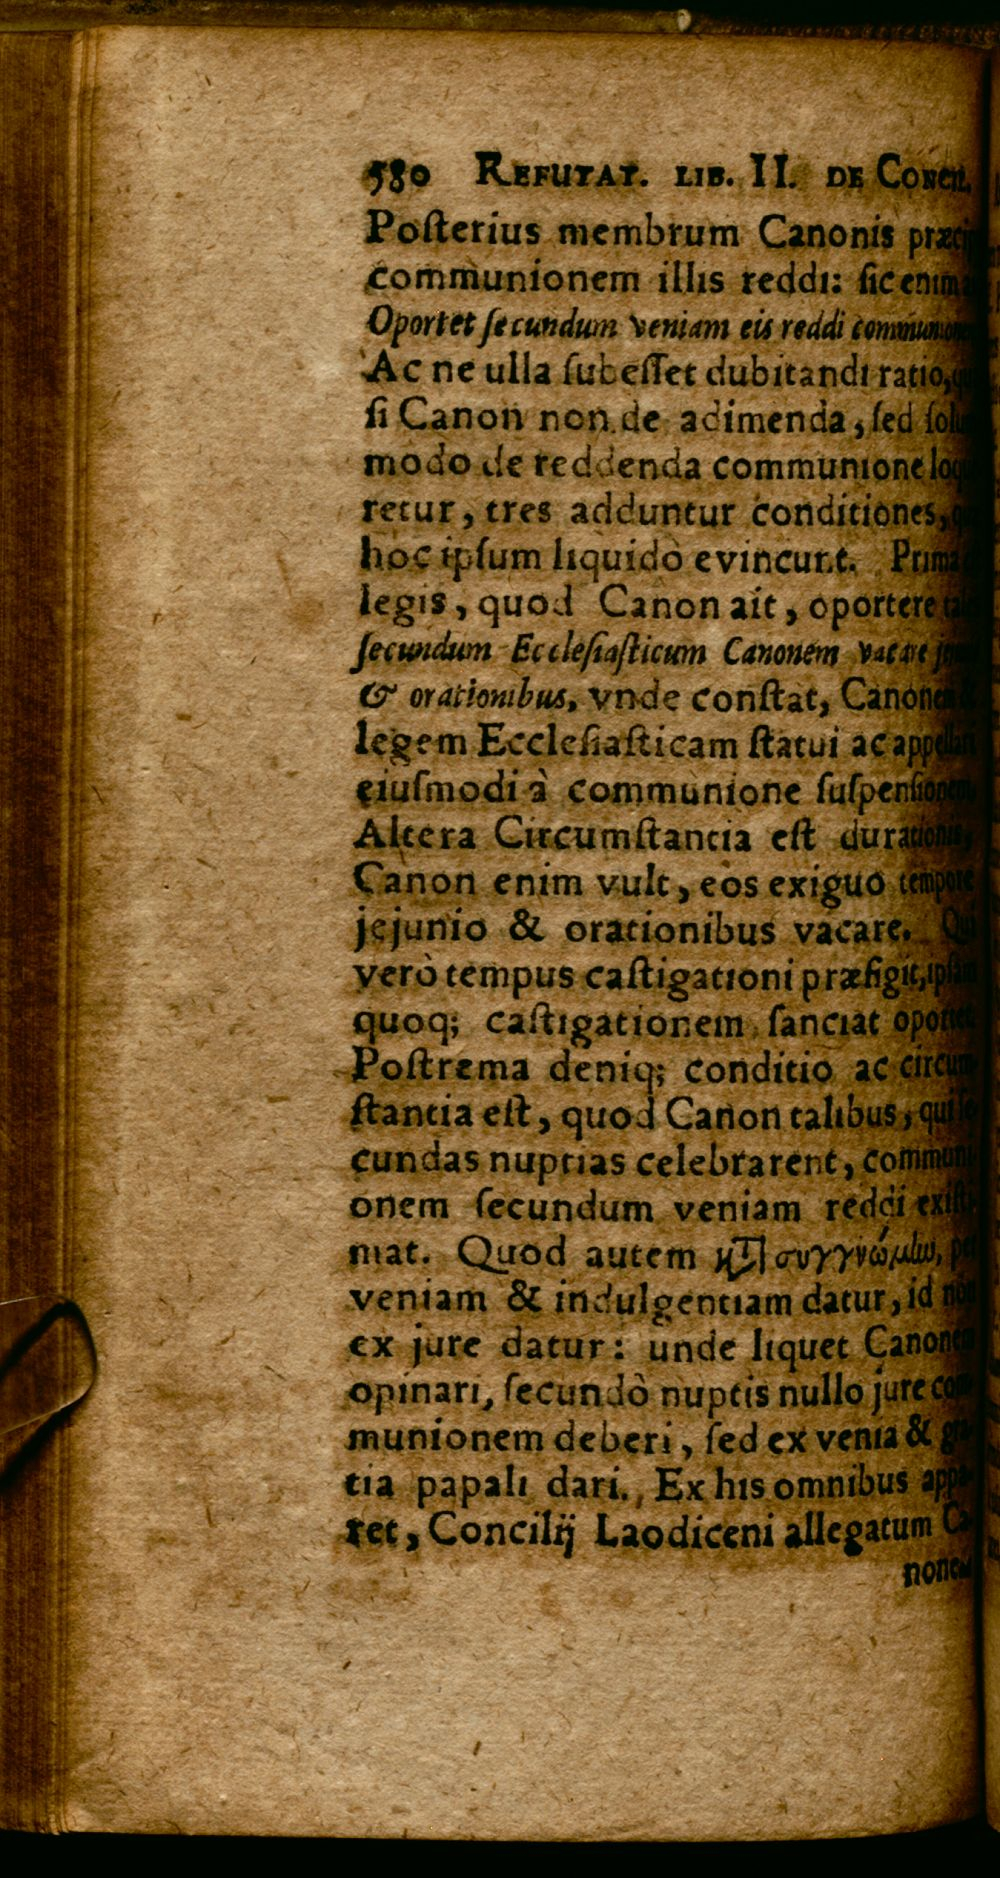 580 REFUTAT. LIB. II. DE CONCIL.
Poſterius membrum Canonis præcip
communionem illis reddi: ſic enim
Oportet ſecundum veniam eis reddi communionem
Ac ne ulla ſubeſſet dubitandi ratio,
ſi Canon non de adimenda, ſed ſolum
modo de reddenda communione loque
retur, tres adduntur conditiones,
hoc ipſum liquidò evincunt. Prima
legis, quod Canon ait, oportere tales
ſecundum Eccleſiaſticum Canonem vacare
& orationibus, vnde conſtat, Canonem &
legem Eccleſiaſticam ſtatui ac appellari
eiuſmodi à communione ſuſpenſionem.
Altera Circumſtantia eſt durationis,
Canon enim vult, eos exiguo tempore
jejunio & orationibus vacare. Qui
verò tempus caſtigationi præfigit, ipſam
quoq; caſtigationem ſanciat oportet.
Poſtrema deniq; conditio ac circum-
ſtantia eſt, quod Canon talibus, qui ſe
cundas nuptias celebrarent, communi-
onem ſecundum veniam reddi exiſti-
mat. Quod autem κτ συγγνώμην, per
veniam & indulgentiam datur, id non
ex jure datur: unde liquet Canonem
opinari, ſecundò nuptis nullo jure com-
munionem deberi, ſed ex venia & gra-
tia papali dari. Ex his omnibus appa-
ret, Concilij Laodiceni allegatum Ca-
nonem